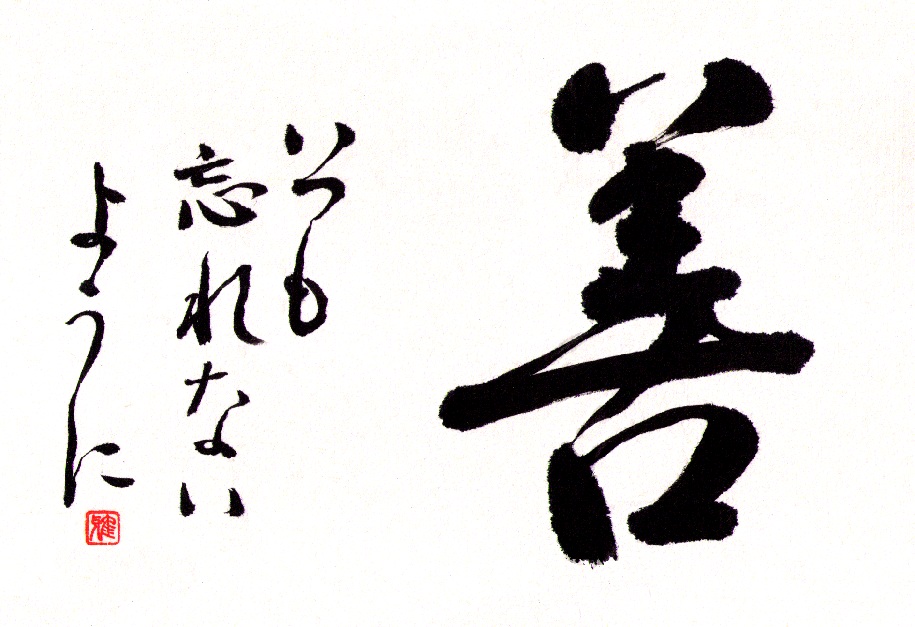 善
いつも
忘れない
ように